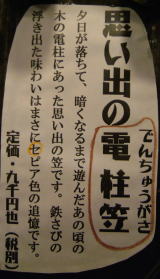 思い出の電柱笠
でんちゅうがさ
夕日が落ちて、暗くなるまで遊んだあの頃の
木の電柱にあった思い出の笠です。鉄さびの
浮き出た味わいはまさにセピア色の追憶です。
定価・九千円也（税別）